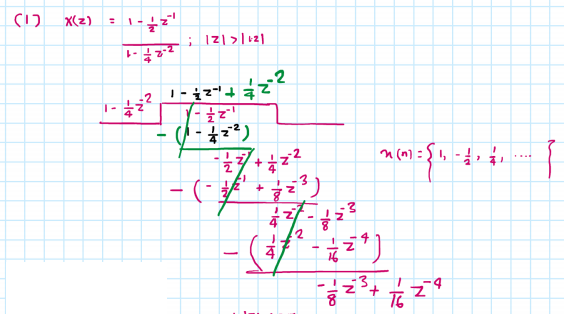 (1) X(z) = 1 - 1/2 z^-1
1 - 1/4 z^-2 ; |z| > |1/2|
1 - 1/2 z^-1 + 1/4 z^-2
1 - 1/4 z^-2
1 - 1/2 z^-1
- (1 - 1/4 z^-2)
- 1/2 z^-1 + 1/4 z^-2
x(n) = { 1, -1/2, 1/4, .... }
- (- 1/2 z^-1 + 1/8 z^-3)
1/4 z^-2 - 1/8 z^-3
- (1/4 z^-2 - 1/16 z^-4)
- 1/8 z^-3 + 1/16 z^-4